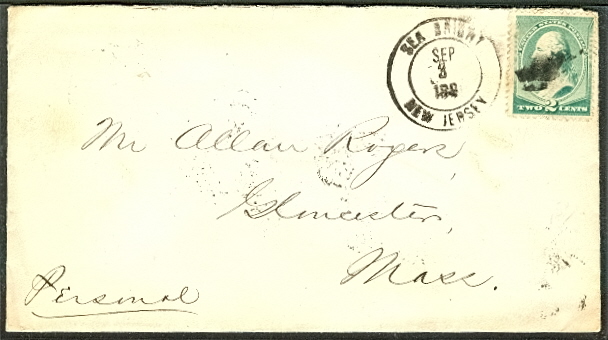 SEA BRIGHT
SEP
188
NEW JERSEY
UNITED STATES POSTAGE
TWO 2 CENTS
Mr Allan Rogers,
Gloucester,
Mass.
Personal